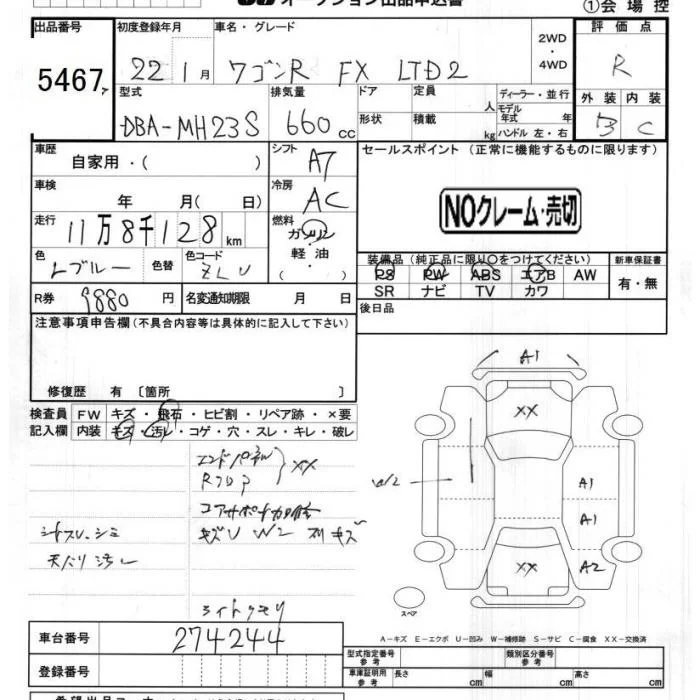 オークション出品申込書 ①会場控
出品番号 初度登録年月 車名・グレード 2WD・4WD 評価点
5467 22 1月 ワゴンR FX LTD2 R
型式 排気量 ドア 定員 人 ディーラー・並行 外装 内装
モデル年式 年
DBA-MH23S 660cc 形状 積載 kg ハンドル 左・右 C
車歴 自家用・( ) シフト AT セールスポイント (正常に機能するものに限ります)
車検 年 月( 日) 冷房 AC NOクレーム・売切
走行 11万8千128km 燃料 ガソリン・軽油
色 Lブルー 色替 色カラーコード ZLU 装備品(純正品に限り○をつけてください) 新車保証書
PS PW ABS エアB AW 有・無
SR ナビ TV カワ
R券 9880円 名変通知期限 月 日 後日品
注意事項申告欄(不具合内容等は具体的に記入して下さい)
修復歴 有 〔箇所 〕
検査員 FW キズ・飛石・ヒビ割・リペア跡・×要
記入欄 内装 キズ・汚レ・コゲ・穴・スレ・キレ・破レ
エンドパネル XX
Rフロア
コアサポート
シートスレ・シミ キズU W2 スリキズ
天バリ汚レ
ライトクモリ
A1
XX
W2 A1
A1
XX A2
スペア
A-キズ E-エクボ U-凹み W-補修跡 S-サビ C-腐食 XX-交換済
車台番号 274244 型式指定番号 参考 類別区分番号 参考
登録番号 車庫証明用 参考 長さ cm 幅 cm 高さ cm
希望出品コーナー